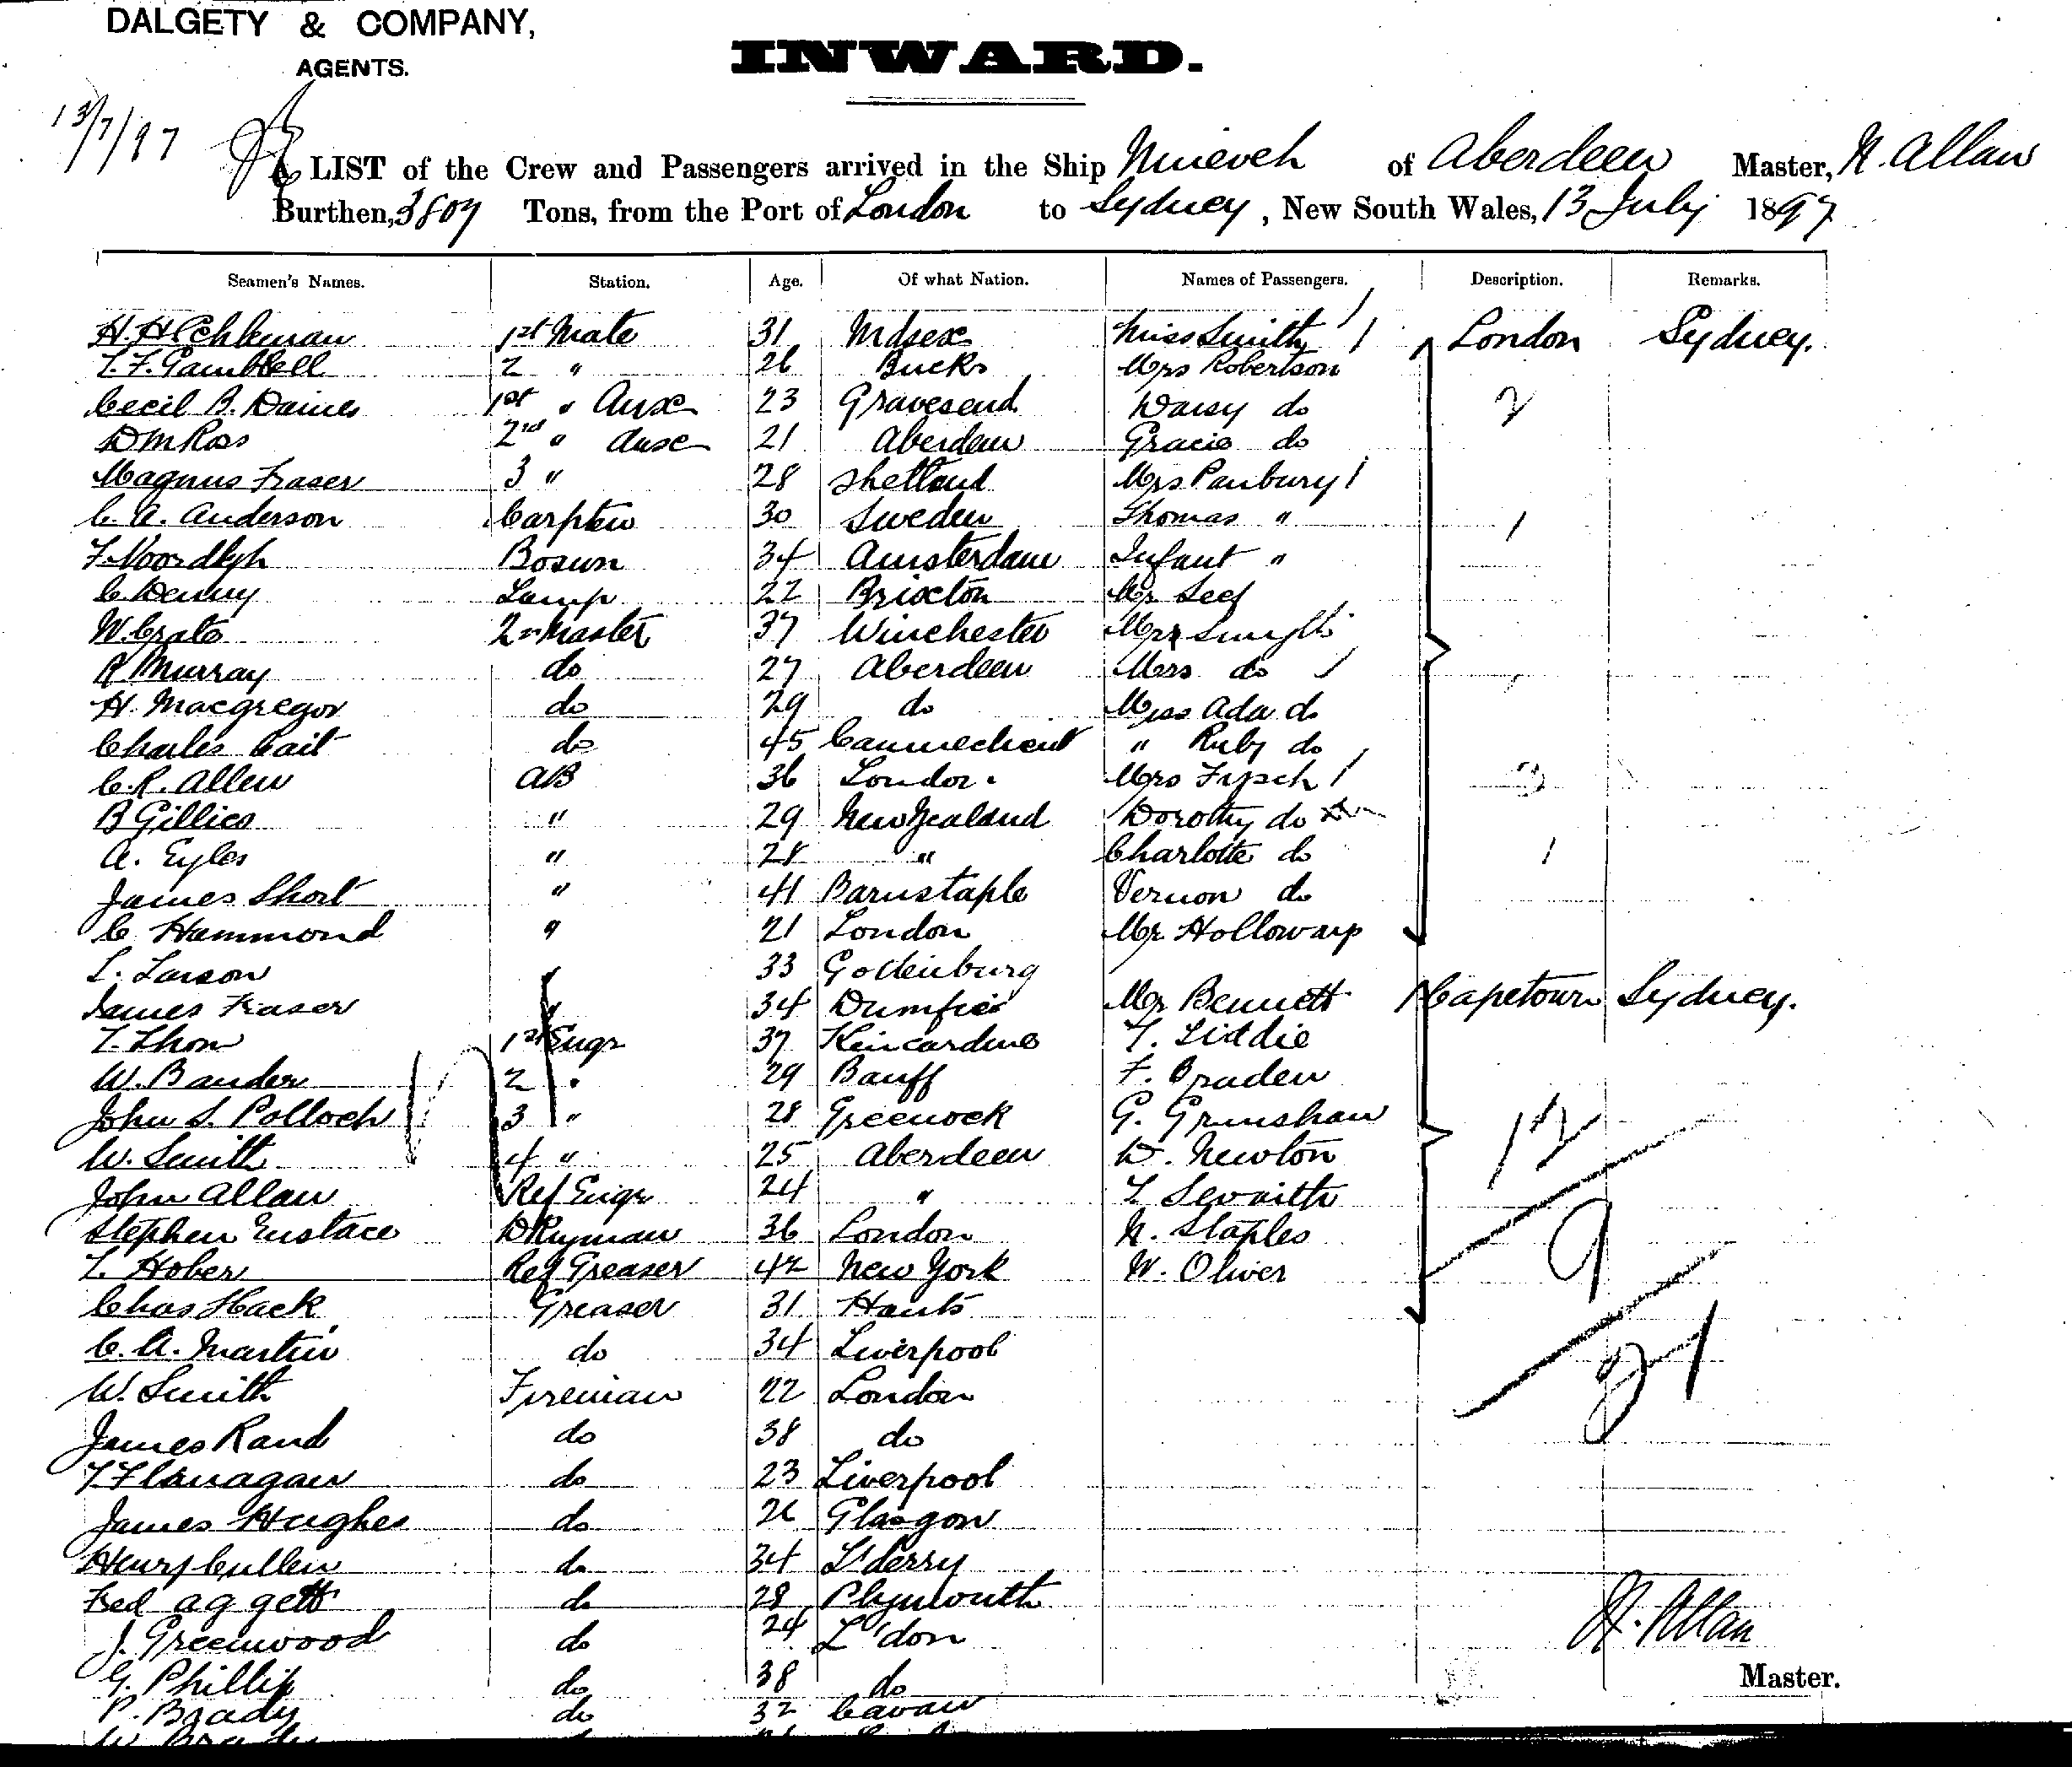 DALGETY & COMPANY,
AGENTS.
INWARD.
13/7/97
A LIST of the Crew and Passengers arrived in the Ship Nineveh of Aberdeen Master, N. Allan
Burthen, 3807 Tons, from the Port of London to Sydney, New South Wales, 13 July 1897
Seamen's Names. Station. Age. Of what Nation. Names of Passengers. Description. Remarks.
1st Mate 31 Mdsex Miss Smith 1 London Sydney.
2 " 26 Bucks Mrs Robertson
Cecil B. Daines 1st " Auxe 23 Gravesend Daisy do 2
D M Ross 2nd " Auxe 21 Aberdeen Gracie do
Magnus Fraser 3 " 28 Shetland Mrs Panbury 1
C. A. Anderson Carpter 30 Sweden Thomas " 1
Bosun 34 Amsterdam Infant "
C. Denny Lamp 22 Brixton Mr
W. Crate 2r Master 37 Winchester
R Murray do 27 Aberdeen do
H. Macgregor do 29 do Miss Ada do
Charles Cait do 45 " Ruby do
C. R. Allen AB 36 London Mrs Frpsch 1
B Gillies " 29 New Zealand Dorothy do
A. Eyles " 28 " Charlotte do 1
James Short " 41 Barnstaple Vernon do
C. Hammond " 21 London Mr Holloway
L. Larson 33 Gottenburg
James Fraser " 34 Dumfries Mr Bennett Capetown Sydney.
T. Thom 1st Engr 37 Kincardine T. Liddie
W. Bander 2 " 29 Banff F. Braden
John S. Polloch 3 " 28 Greenock G. Grimshaw 12
W. Smith 4 " 25 Aberdeen D. Newton
John Allan Ref Engr 24 "
Stephen Eustace DKyman 36 London N. Staples 9
T. Hober Ref Greaser 42 New York W. Oliver
Chas Hack Greaser 31 Hants
C. A. Martin do 34 Liverpool 21
W. Smith Fireman 22 London
James Rand do 38 do
T. Flanagan do 23 Liverpool
James Hughes do 26 Glasgow
Henry Cullen do 34 L'derry
Fred aggett do 28 Plymouth
J. Greenwood do 24 L'don
N. Allan
G. Phillip do 38 do
Master.
P. Brady do 32 Cavan